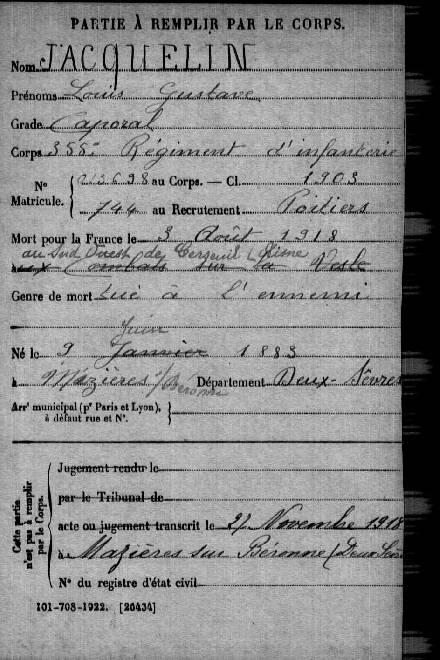 PARTIE À REMPLIR PAR LE CORPS.
Nom JACQUELIN
Prénoms Louis Gustave
Grade Caporal
Corps 355e Régiment d'infanterie
N° Matricule. { 213698 au Corps. — Cl. 1903
744 au Recrutement Poitiers
Mort pour la France le 3 Août 1918
au Sud Ouest de Cerseuil (Aisne
aux Combats sur la Vesle
Genre de mort tué à l'ennemi
Juin
Né le 9 Janvier 1883
à Mézières s/ Béronne Département Deux-Sèvres
Arrt municipal (pr Paris et Lyon), à défaut rue et N°.
Cette partie n'est pas à remplir par le Corps.
Jugement rendu le
par le Tribunal de
acte ou jugement transcrit le 27 Novembre 1918
à Mazières sur Béronne (Deux Sèvres
N° du registre d'état civil
101-708-1922. [26434]